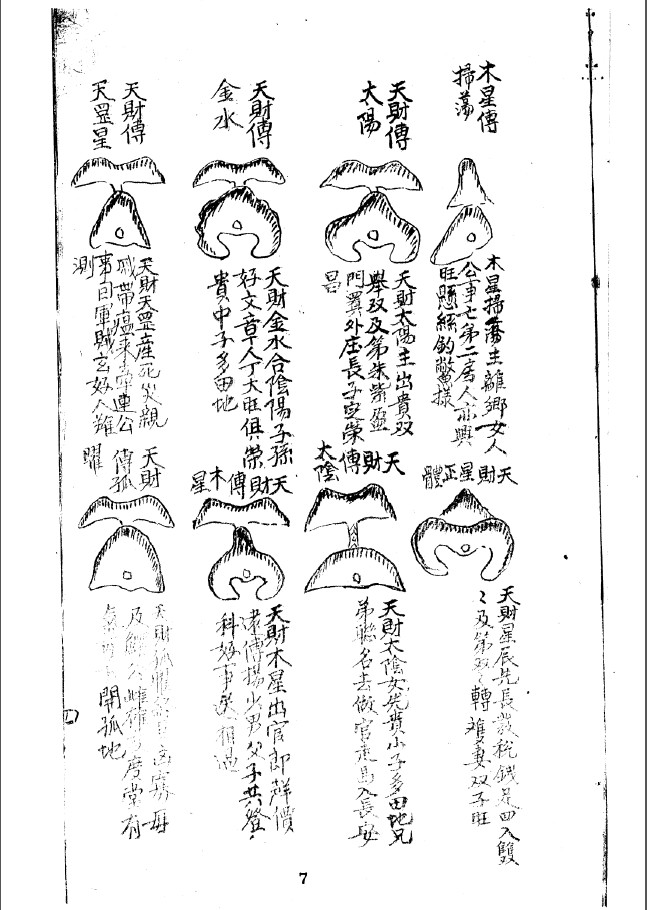 木星傳
掃蕩
木星掃蕩主離鄉女人
公事七第二房人亦興
旺懸絲釣鱉樣
天財傳
太陽
天財太陽主出貴双
舉双及第朱紫盈
門翼外庄長子定榮
昌
天財傳
金水
天財金水合陰陽子孫
好文章人丁大旺俱榮
貴中子多田地
天財傳
天罡星
天財天罡產死災親
戚帶瘟來牽連公
事囙軍賊玄好人難
測
天財星正體
天財星辰先長裁稅錢足四入雙
〻及第双〻轉難妻双子旺
天財傳
太陰
天財太陰女先貴小子多田地兄
弟聯名去做官走馬入長安
天財傳木星
天財木星出官郎群價
傳揚少男父子共登
科好事
天財
傳孤
曜
天財孤
及
開孤地
7